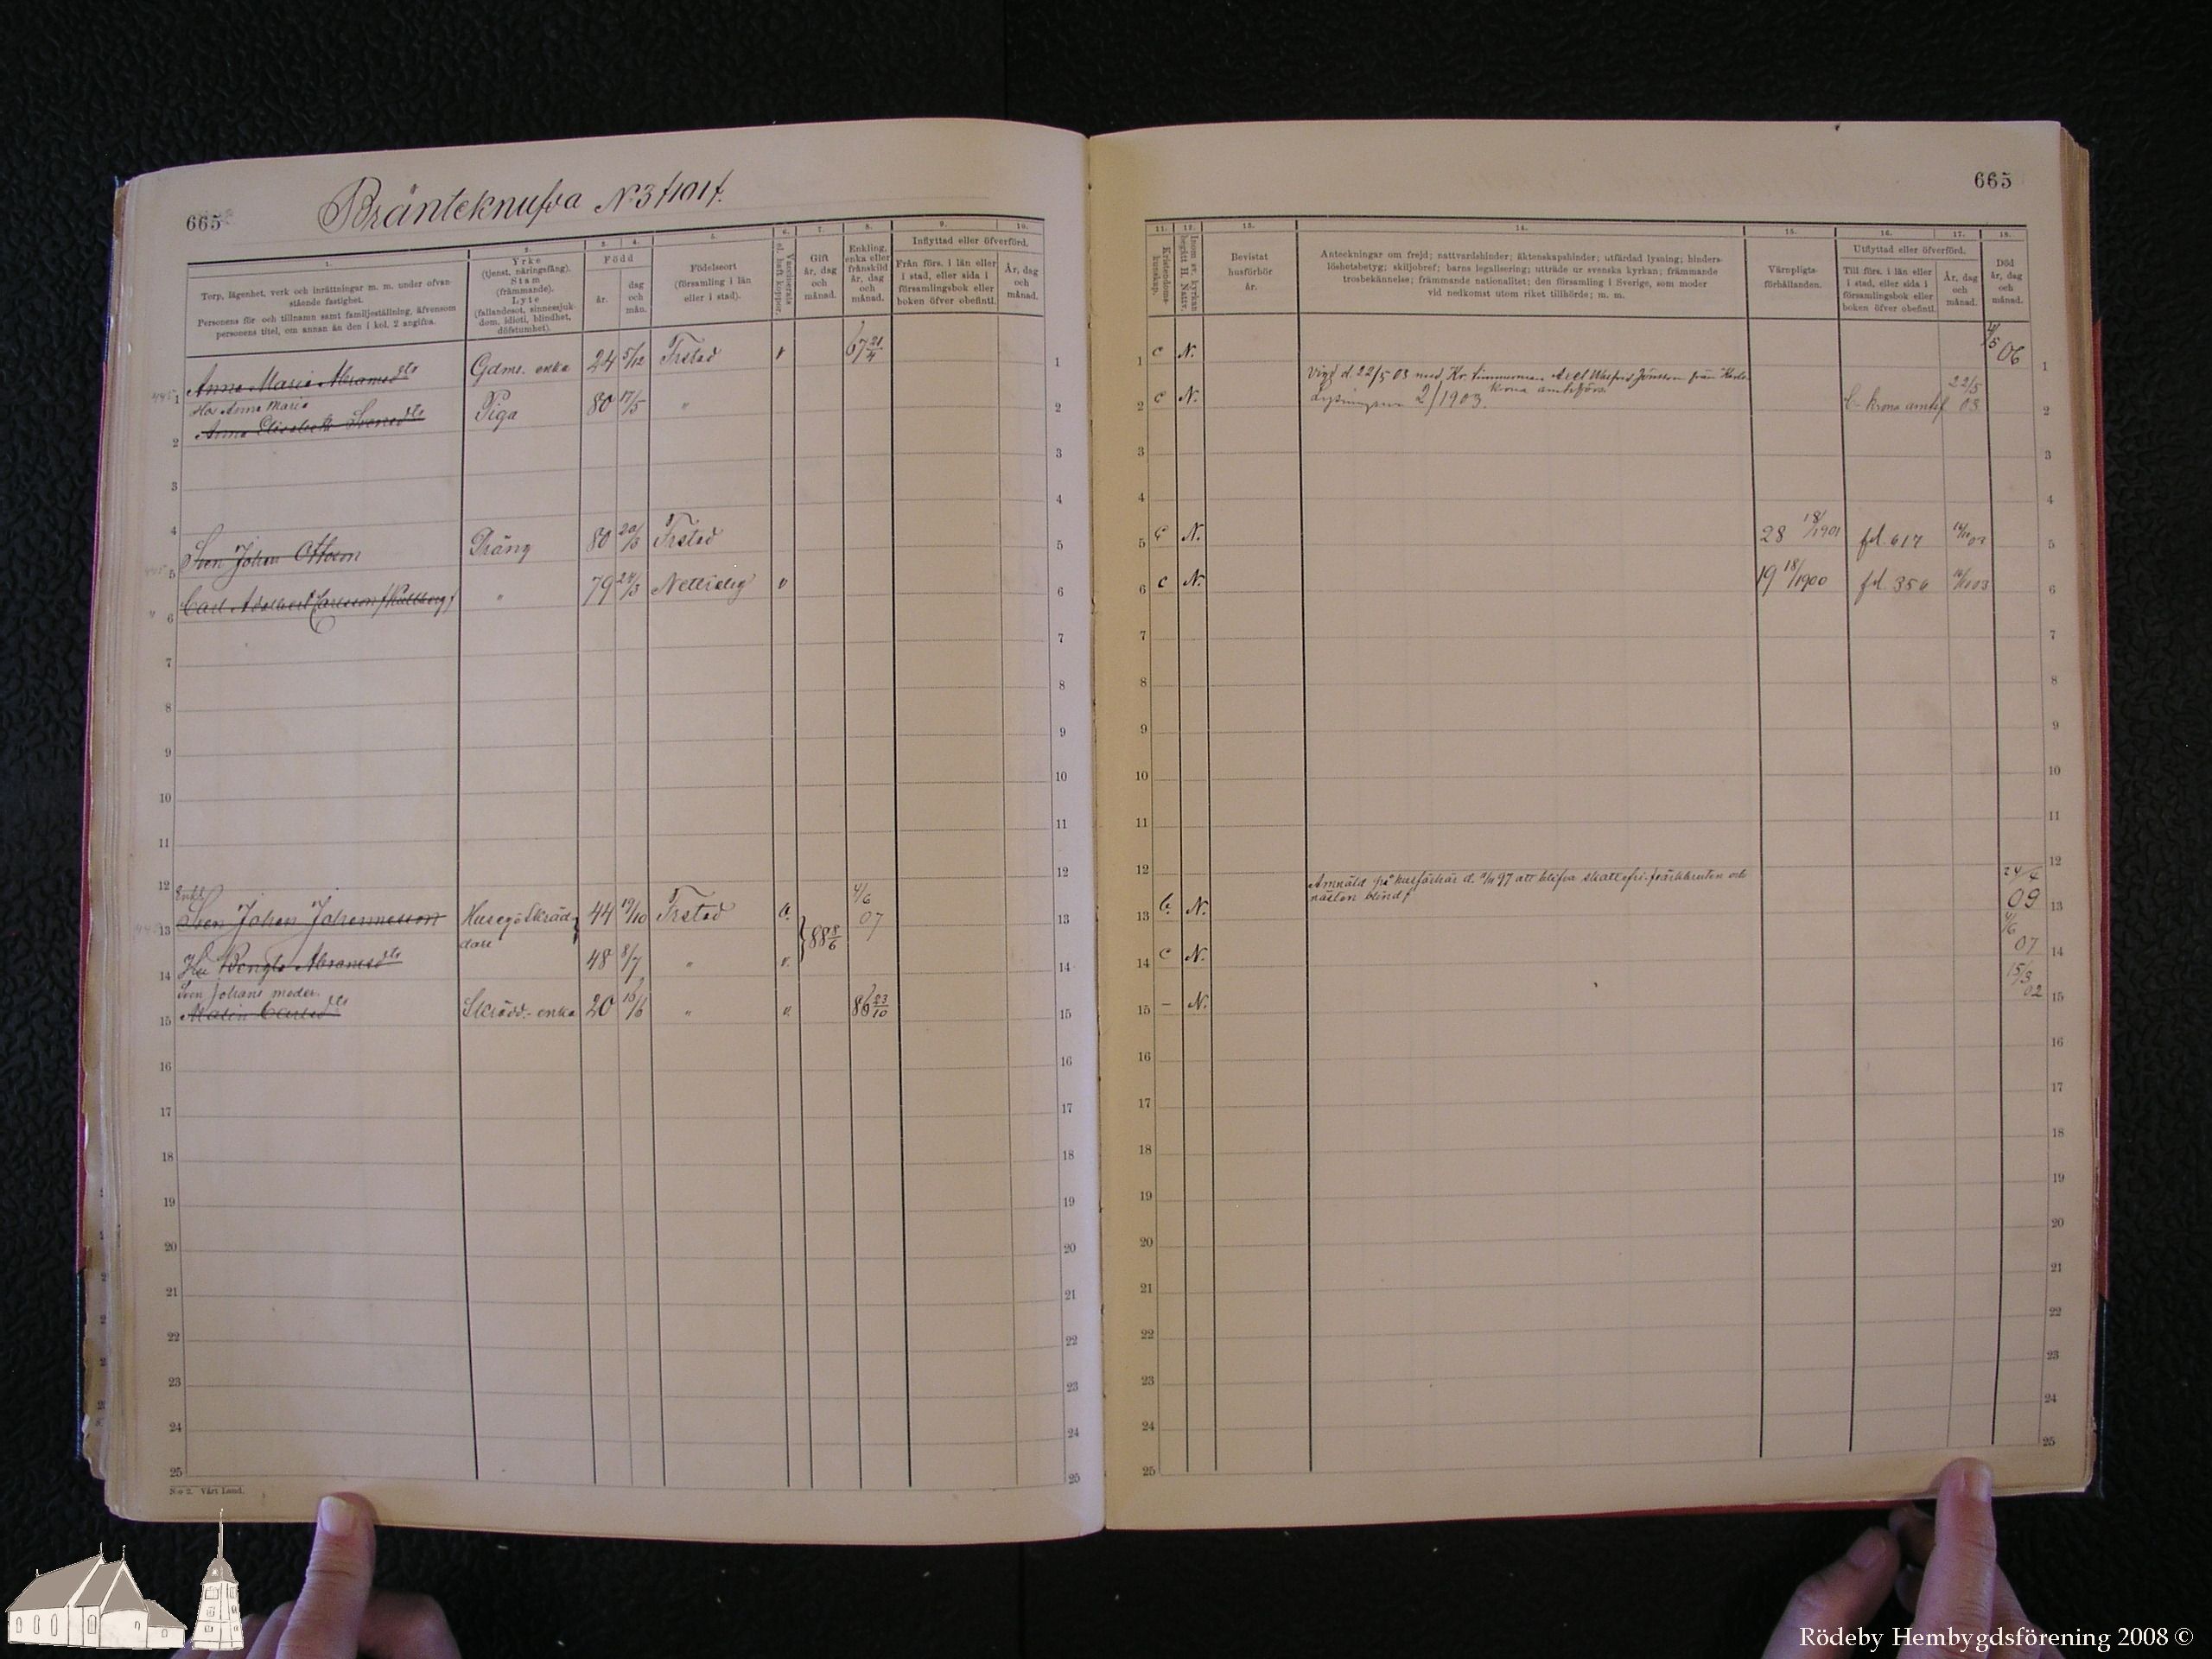 665
Bränteknufva N:3 f101f.
1.
Torp, lägenhet, verk och inrättningar m. m. under ofvan-
stående fastighet.
Personens för- och tillnamn samt familjeställning, äfvensom
personens titel, om annan än den i kol. 2 angifva.
2.
Yrke
(tjenst, näringsfång).
Stam
(främmande).
Lyte
(fallandesot, sinnessjuk-
dom, idioti, blindhet,
döfstumhet).
3. 4.
Född
år.
dag
och
mån.
5.
Födelseort
(församling i län
eller i stad).
6.
Vaccinerats
el. haft koppor.
7.
Gift
år, dag
och
månad.
8.
Enkling,
enka eller
frånskild
år, dag
och
månad.
9. 10.
Inflyttad eller öfverförd.
Från förs. i län eller
i stad, eller sida i
församlingsbok eller
boken öfver obefintl.
År, dag
och
månad.
1 Anna Maria Abramsdtr Gdms. enka 24 5/12 Frstad v 67 21/4 1
Hos Anna Maria
2 Anna Elisabeth Svensdtr Piga 80 17/5 " 2
3 3
4 4
5 Sven Johan Ottosson Dräng 80 20/3 Frstad 5
6 Carl Adolf Carlsson " 79 24/3 Nettraby v 6
7 7
8 8
9 9
10 10
11 11
12 12
Enkl.
13 Sven Johan Johannesson Husegö Skräd- 44 19/10 Frstad v. 4/6 07 13
dare
88 8/6
14 Hu Bengta Abramsdtr 48 8/7 " v. 14
Sven Johans moder
15 Malin Carlsdtr Skrädd.-enka 20 15/6 " v. 86 23/10 15
16 16
17 17
18 18
19 19
20 20
21 21
22 22
23 23
24 24
25 25
N:o 2. Vårt Land.
665
11.
Kristendoms-
kunskap.
12.
Inom sv. kyrkan
begått H. Nattv.
13.
Bevistat
husförhör
år.
14.
Anteckningar om frejd; nattvardshinder; äktenskapshinder; utfärdad lysning; hinders-
löshetsbetyg; skiljobref; barns legalisering; utträde ur svenska kyrkan; främmande
trosbekännelse; främmande nationalitet; den församling i Sverige, som moder
vid nedkomst utom riket tillhörde; m. m.
15.
Värnpligts-
förhållanden.
16. 17.
Utflyttad eller öfverförd.
Till förs. i län eller
i stad, eller sida i
församlingsbok eller
boken öfver obefintl.
År, dag
och
månad.
18.
Död
år, dag
och
månad.
1 c N. 06 1
Vigd d. 22/5 03 med Kr. timmerman Axel Jönsson från Karls-
krona amtsförs.
2 c N. Lysningen 2/1903. C-krona amtsf 22/5 03 2
3 3
4 4
5 c N. 28 18/1901 fd. 617 5
6 c N. 19 18/1900 fd. 356 6
7 7
8 8
9 9
10 10
11 11
12 12
Anmäld på husförhör d. 97 att blifva skattefri. och
nästen blind
13 b. N. 24/4 09 13
14 c N. 4/6 07 14
15 – N. 15/3 02 15
16 16
17 17
18 18
19 19
20 20
21 21
22 22
23 23
24 24
25 25
Rödeby Hembygdsförening 2008 ©